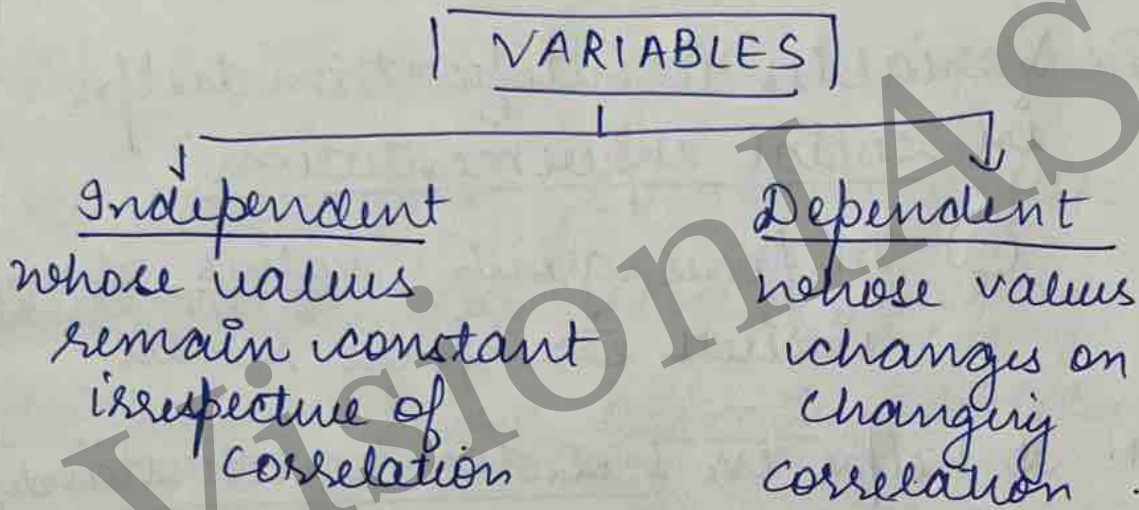 VARIABLES
Independent
whose values
remain constant
irrespective of
correlation
Dependent
whose values
changes on
changing
correlation.
VisionIAS